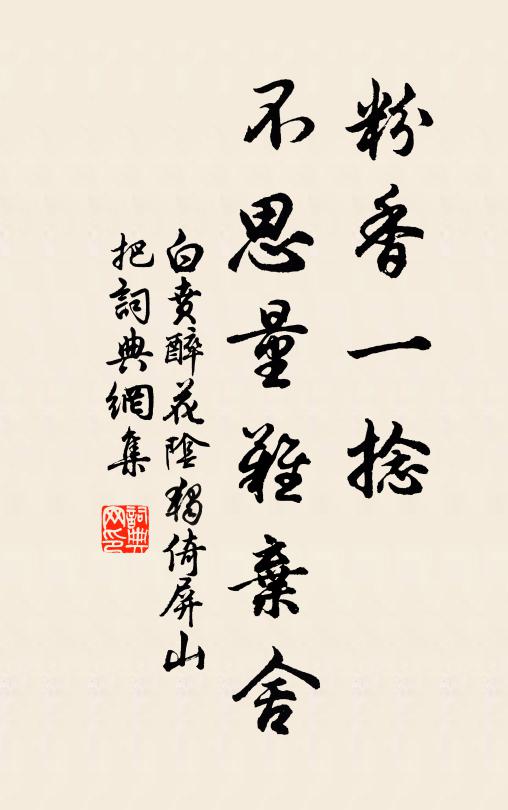 粉香一捻
不思量難棄舍
白賁醉花陰獨倚屏山
把詞典網集
詞典網印